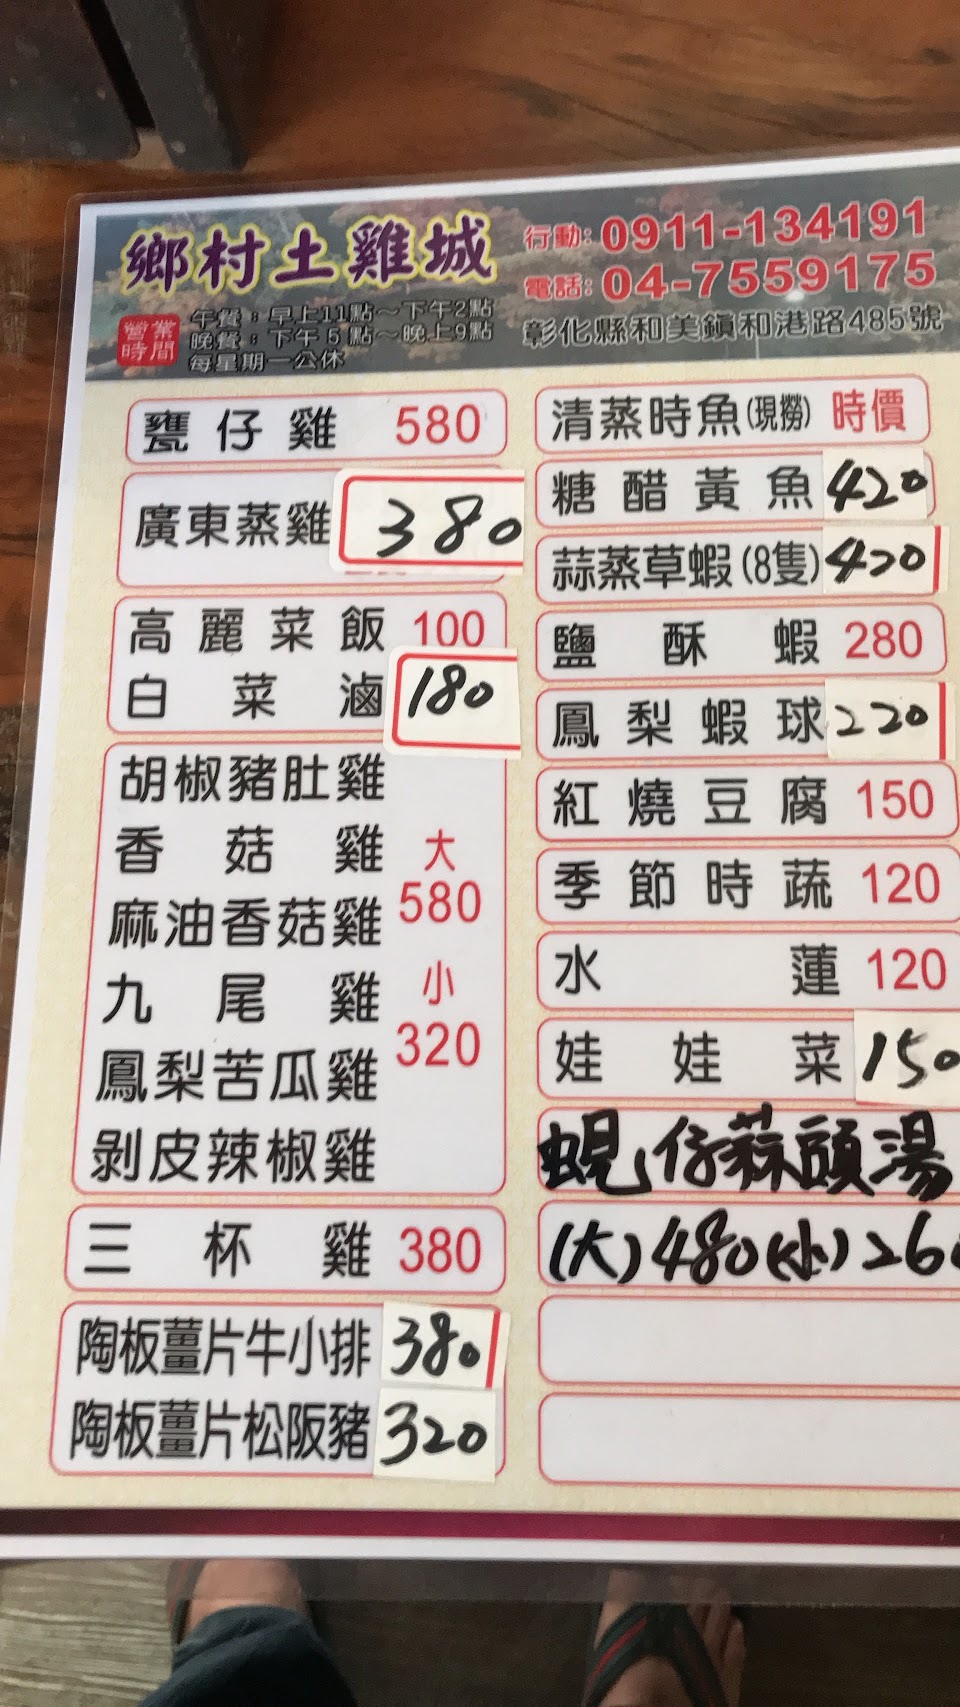 鄉村土雞城
行動:0911-134191
電話:04-7559175
營業時間
午餐:早上11點~下午2點
晚餐:下午5點~晚上9點
每星期一公休
彰化縣和美鎮和港路485號
甕仔雞 580
廣東蒸雞 380
高麗菜飯 100
白菜滷 180
胡椒豬肚雞
香菇雞
麻油香菇雞
九尾雞
鳳梨苦瓜雞
剝皮辣椒雞
大
580
小
320
三杯雞 380
陶板薑片牛小排 380
陶板薑片松阪豬 320
清蒸時魚(現撈) 時價
糖醋黃魚 420
蒜蒸草蝦(8隻) 420
鹽酥蝦 280
鳳梨蝦球 220
紅燒豆腐 150
季節時蔬 120
水蓮 120
娃娃菜 150
蜆仔蒜頭湯
(大)480(小)260